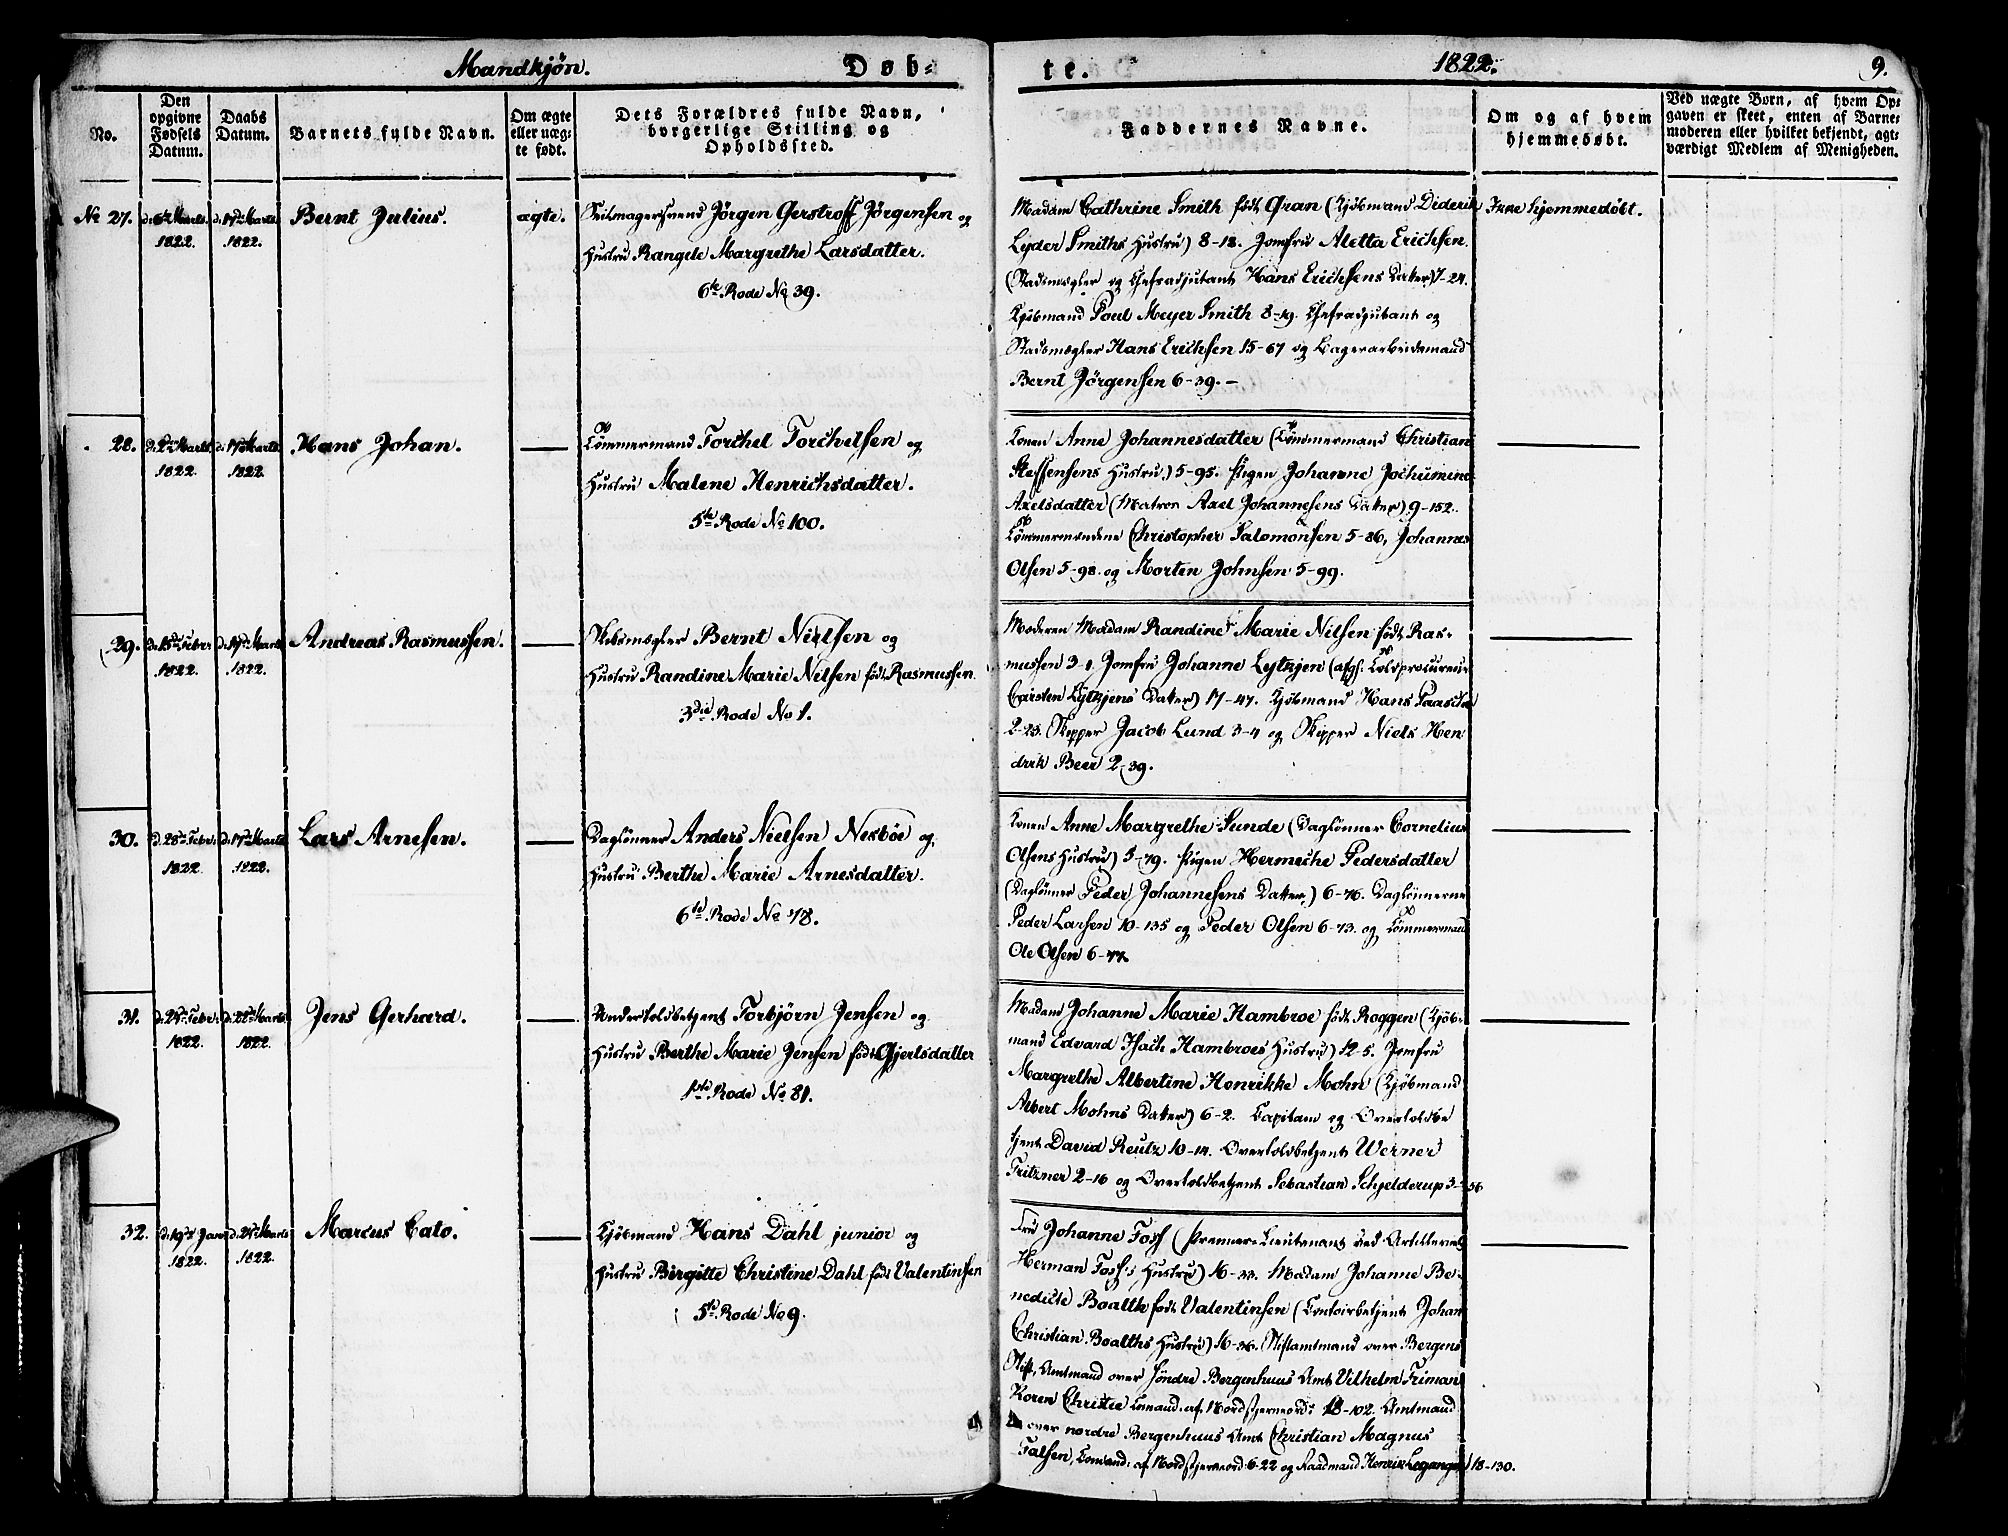 Mandkjøn.
Døb-
te.
1822.
9.
No.
Den opgivne Fødsels Datum.
Daabs Datum.
Barnets fulde Navn.
Om ægte eller uæg- te født.
Dets Forældres fulde Navn, borgerlige Stilling og Opholdssted.
Faddernes Navne.
Om og af hvem hjemmedøbt.
Ved uægte Børn, af hvem Op- gaven er skeet, enten af Barne- moderen eller hvilket bekjendt, agt- værdigt Medlem af Menigheden.
No 27.
Marts 1822.
d. 17de Marts 1822.
Bernt Julius.
ægte.
Seilmagersvend Jörgen Gerstroff Jörgensen og
Hustru Rangele Margrethe Larsdatter.
6te Rode No 39.
Madam Cathrine Smith født Gran (Kjöbmand Diderik
Lyder Smiths Hustru) 8-18. Jomfru Aletta Erichsen
(Stadsmægler og Chefsadjutant Hans Erichsens Datter) 7-24.
Kjöbmand Poul Meyer Smith 8-19. Chefsadjutant og
Stadsmægler Hans Erichsen 15-67 og Lagerarbeidsmand
Bernt Jörgensen 6-39.-
Ikke hjemmedöbt.
28.
d. 2den Marts 1822.
d. 17de Marts 1822.
Hans Johan.
Tömmermand Torchel Torchelsen og
Hustru Malene Henrichsdatter.
5te Rode No 100.
Konen Anne Johannesdatter (Tömmermand Christian
Steffensens Hustru) 5-95. Pigen Johanne Jochumine
Axelsdatter (Matros Axel Johannesens Datter) 9-152.
Tömmermændene Christopher Salomonsen 5-86, Johannes
Olsen 5-98. og Morten Johnsen 5-99.
29.
d. 15de Febr. 1822.
Marts 1822.
Andreas Rasmussen.
Skibsmægler Bernt Nielsen og
Hustru Randine Marie Nilsen født Rasmussen
3die Rode No 1.
Moderen Madam Randine Marie Nilsen født Ras-
mussen 3-1. Jomfru Johanne Lytzjen (afgl. Toldprocureur
Carsten Lytzjens Datter) 17-47. Kjöbmand Hans Paasche
2-23. Skipper Jacob Lund 3-4 og Skipper Niels Hen
drik Beer 2-39.
30.
d. 28de Febr. 1822.
d. 17de Marts 1822.
Lars Arnesen.
Daglönner Anders Nielsen Nesböe og
Hustru Berthe Marie Arnesdatter.
6te Rode No 78.
Konen Anne Margrethe Sunde (Daglönner Cornelius
Olsens Hustru) 5-79. Pigen Hermeche Pedersdatter
(Daglönner Peder Johannesens Datter) 6-76. Daglönnerne
Peder Larsen 10-135 og Peder Olsen 6-73. og Tömmermand
Ole Olsen 6-77.
31.
Febr. 1822.
Marts 1822.
Jens Gerhard.
Undertoldbetjent Torbjörn Jensen og
Hustru Berthe Marie Jensen født Gjertsdatter
1ste Rode No 81.
Madam Johanne Marie Hambroe født Roggen (Kjöb-
mand Edvard Isach Hambroes Hustru) 12-5. Jomfru
Margrethe Albertine Henrikke Mohn (Kjöbmand
Albert Mohns Datter) 6-2. Capitain og Overtoldbe
tjent David Reutz 10-14. Overtoldbetjent Werner
Fritzner 2-16 og Overtoldbetjent Sebastian Schjelderup 3-
32.
d. 19de Janr. 1822.
Marts 1822.
Marcus Cato.
Kjöbmand Hans Dahl junior og
Hustru Birgitte Christine Dahl født Valentinsen
5te Rode No 9.
Fru Johanne Foss (Premier-Lieutenant ved Artilleriet
Herman Foss's Hustru) 16-33. Madam Johanne Be-
nedicte Boalth født Valentinsen (Contoirbetjent Johan
Christian Boalths Hustru) 16-36. Stiftamtmand over Bergens
Stift, Amtmand over Söndre Bergenhuus Amt Vilhelm Friman
Koren Christie Comand. af Nordstjerneord: 18-102. Amtmand
over nordre Bergenhuus Amt Christian Magnus
Falsen, Comand: af Nordstjerneord: 6-22 og Raadmand Henrik Leganger 18-130.